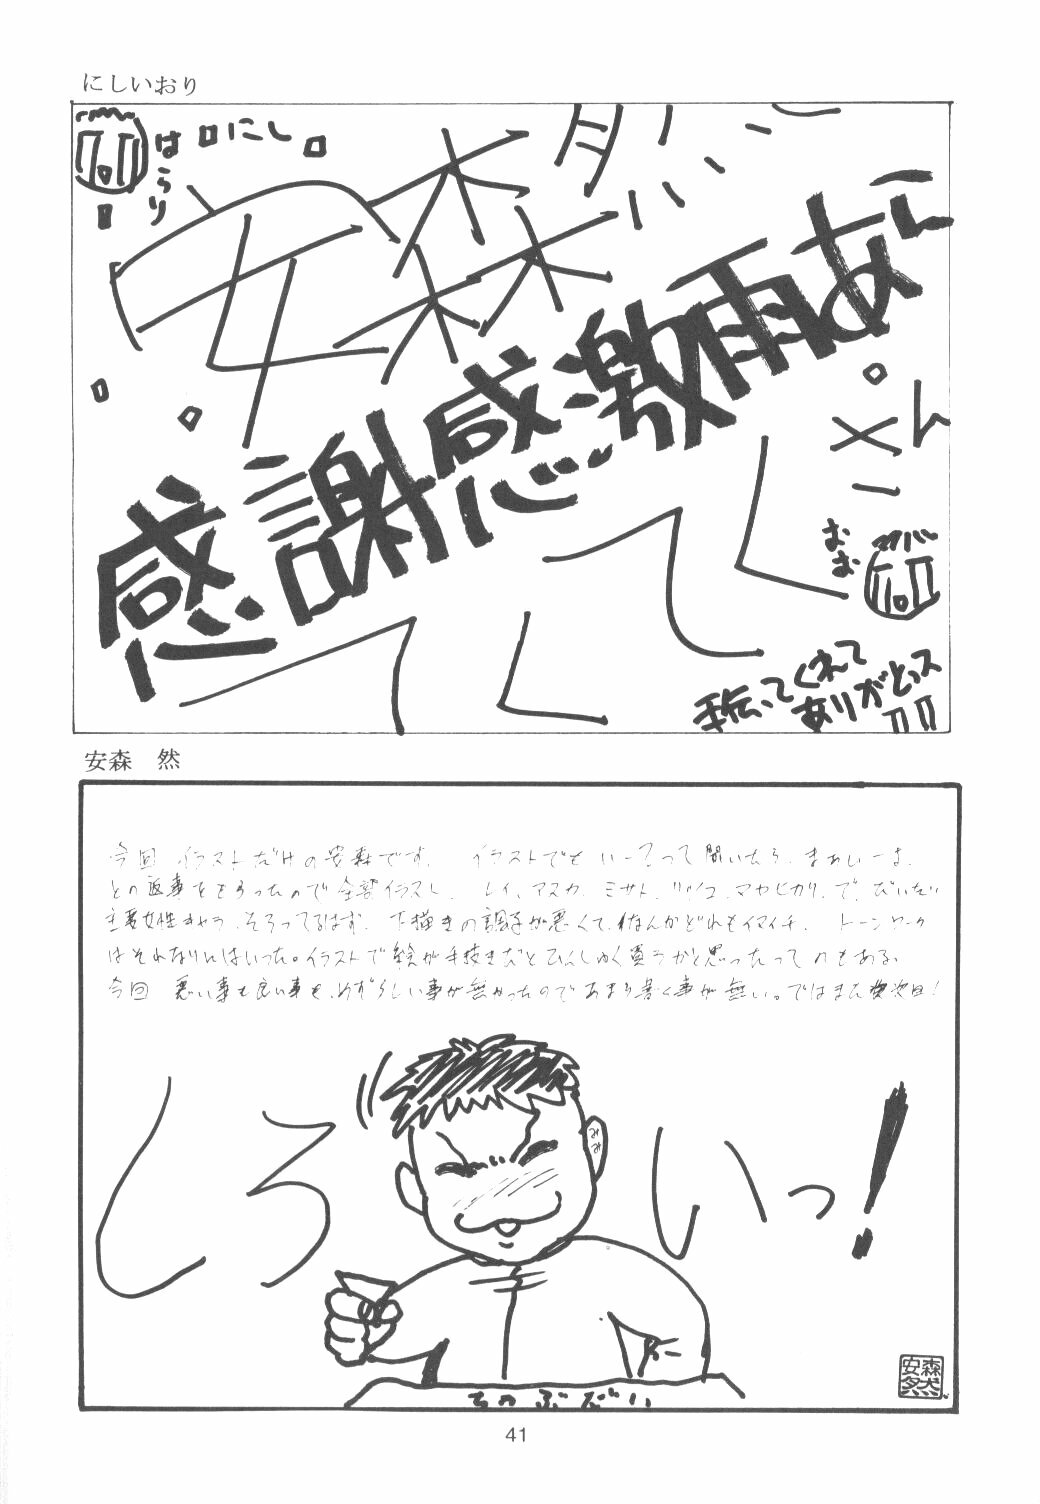 にしいおり
はらり
にし
安森然
感謝感激雨あ
おお
手伝ってくれて
ありがとっス
!!
安森　然
今回 イラストだけの安森です。イラストでも いーっ?って聞いたら、まぁいーよ、
との返事をもらったので全部イラスト。 レイ、アスカ、ミサト、リツコ、マヤ、ヒカリ、で、だいたい
主要女性キャラ、そろってるはず。下描きの調子が悪くて、なんかどれもイマイチ。トーンワーク
はそれなりにはいった。イラストで絵が手抜きだとひんしゅく買うかと思ったってのもある。
今回 悪い事も良い事も、めずらしい事が無かったのであまり書く事が無い。ではまた次回!
しろいっ!
みみ
ちゃぶだい
安森然
41